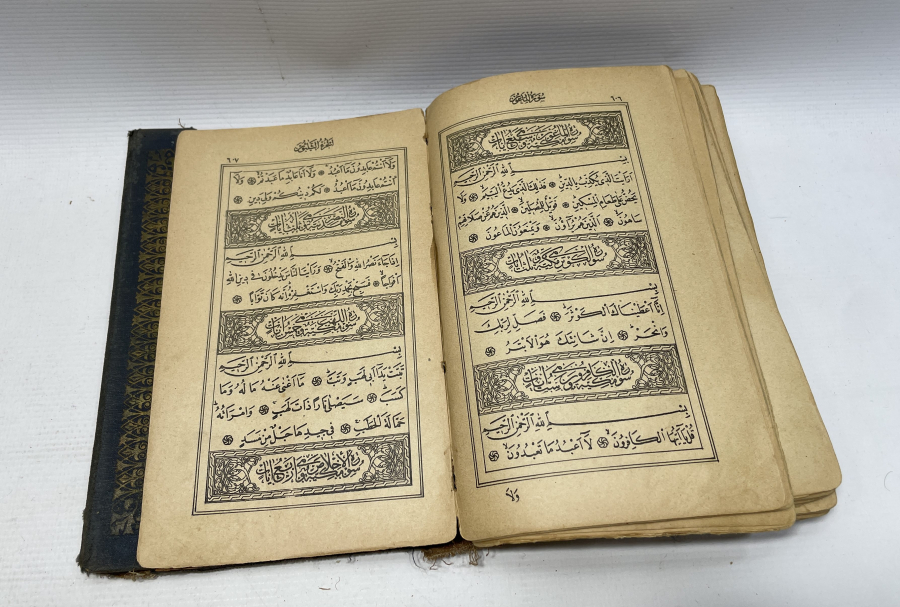 ٦٠٦
سورة الماعون مكية وهي سبع آيات
بِسْمِ اللّٰهِ الرَّحْمٰنِ الرَّحِيمِ
اَرَاَيْتَ الَّذِى يُكَذِّبُ بِالدِّينِ ۞ فَذٰلِكَ الَّذِى يَدُعُّ الْيَتِيمَ ۞ وَلَا
يَحُضُّ عَلٰى طَعَامِ الْمِسْكِينِ ۞ فَوَيْلٌ لِلْمُصَلِّينَ ۞ اَلَّذِينَ هُمْ عَنْ صَلَاتِهِمْ
سَاهُونَ ۞ اَلَّذِينَ هُمْ يُرَاؤُنَ ۞ وَيَمْنَعُونَ الْمَاعُونَ ۞
سورة الكوثر مكية وهي ثلث آيات
بِسْمِ اللّٰهِ الرَّحْمٰنِ الرَّحِيمِ
اِنَّا اَعْطَيْنَاكَ الْكَوْثَرَ ۞ فَصَلِّ لِرَبِّكَ
وَانْحَرْ ۞ اِنَّ شَانِئَكَ هُوَ الْاَبْتَرُ ۞
سورة الكافرون مكية وهي ست آيات
بِسْمِ اللّٰهِ الرَّحْمٰنِ الرَّحِيمِ
قُلْ يَا اَيُّهَا الْكَافِرُونَ ۞ لَا اَعْبُدُ مَا تَعْبُدُونَ ۞
وَلَا
الجزء الثلثون
٦٠٧
وَلَا اَنْتُمْ عَابِدُونَ مَا اَعْبُدُ ۞ وَلَا اَنَا عَابِدٌ مَا عَبَدْتُمْ ۞ وَلَا
اَنْتُمْ عَابِدُونَ مَا اَعْبُدُ ۞ لَكُمْ دِينُكُمْ وَلِىَ دِينِ ۞
سورة النصر مدنية وهي ثلث آيات
بِسْمِ اللّٰهِ الرَّحْمٰنِ الرَّحِيمِ
اِذَا جَاءَ نَصْرُ اللّٰهِ وَالْفَتْحُ ۞ وَرَاَيْتَ النَّاسَ يَدْخُلُونَ فِى دِينِ اللّٰهِ
اَفْوَاجًا ۞ فَسَبِّحْ بِحَمْدِ رَبِّكَ وَاسْتَغْفِرْهُ اِنَّهُ كَانَ تَوَّابًا ۞
مكية وهي خمس آيات
بِسْمِ اللّٰهِ الرَّحْمٰنِ الرَّحِيمِ
تَبَّتْ يَدَا اَبِى لَهَبٍ وَتَبَّ ۞ مَا اَغْنٰى عَنْهُ مَالُهُ وَمَا
كَسَبَ ۞ سَيَصْلٰى نَارًا ذَاتَ لَهَبٍ ۞ وَامْرَاَتُهُ
حَمَّالَةَ الْحَطَبِ ۞ فِى جِيدِهَا حَبْلٌ مِنْ مَسَدٍ ۞
سورة الاخلاص مكية وهي اربع آيات